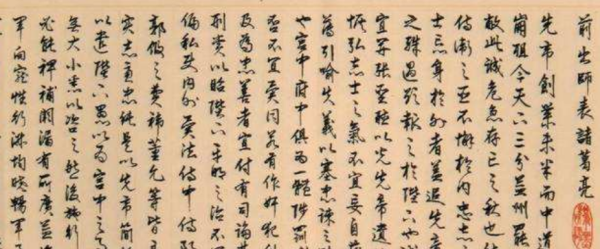 前出師表諸葛亮
先帝創業未半而中道
崩殂今天下三分益州罷
敝此誠危急存亡之秋也
侍衛之臣不懈於內忠志
士忘身於外者蓋追先帝
之殊遇欲報之於陛下也
宜開張聖聽以光先帝遺
恢弘志士之氣不宜妄自
薄引喻失義以塞忠諫之
也宮中府中俱為一體陟罰
否不宜異同若有作奸犯
及為忠善者宜付有司論其
刑賞以昭陛下平明之治不
偏私使內外異法侍中侍
郭攸之費禕董允等皆
實志慮忠純是以先帝簡
以遺陛下愚以為宮中之
無大小悉以咨之然後施行
必能裨補闕漏有所廣益
軍向寵性行淑均曉暢軍